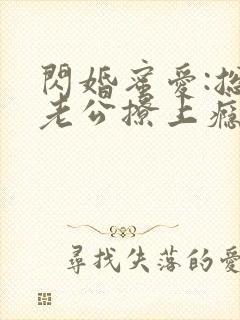 閃婚蜜愛:總
老公撩上癮
尋找失落的愛